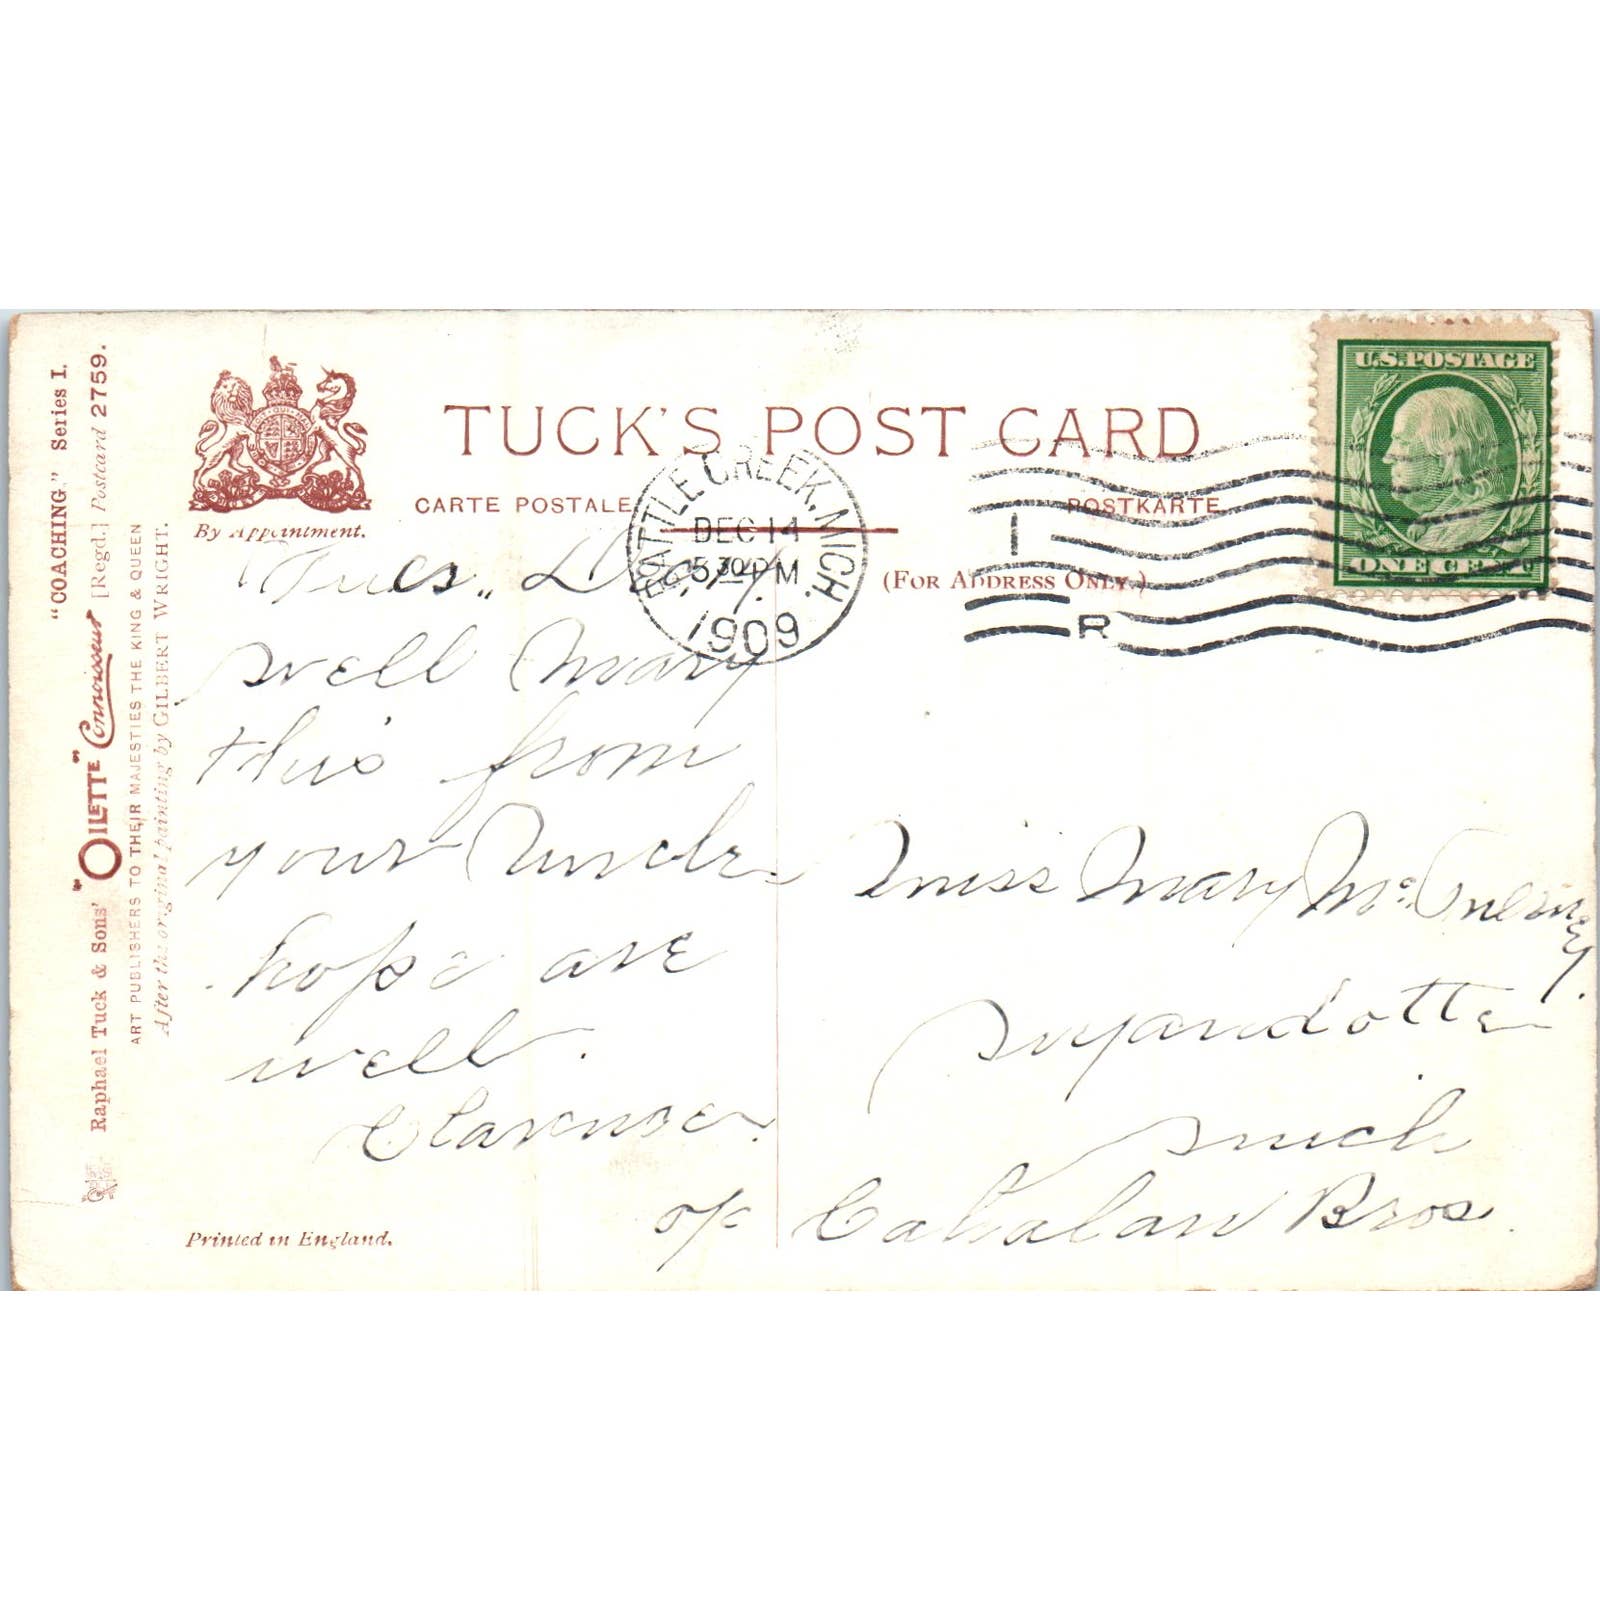 "COACHING." Series I.
Raphael Tuck & Sons' "OILETTE" Connoisseur [Regd.] Postcard 2759.
ART PUBLISHERS TO THEIR MAJESTIES THE KING & QUEEN
After the original painting by GILBERT WRIGHT.
By Appointment.
TUCK'S POST CARD
CARTE POSTALE
POSTKARTE
(FOR ADDRESS ONLY.)
BATTLE CREEK, MICH.
DEC 14
5 30 PM
1909
1
R
U.S. POSTAGE
ONE CENT
Tues,, Dec
well Mary
this from
your Uncle
hope are
well.
Clarence.
Miss Mary
Wyandotte
Mich
o/c Cahalan Bros.
Printed in England.